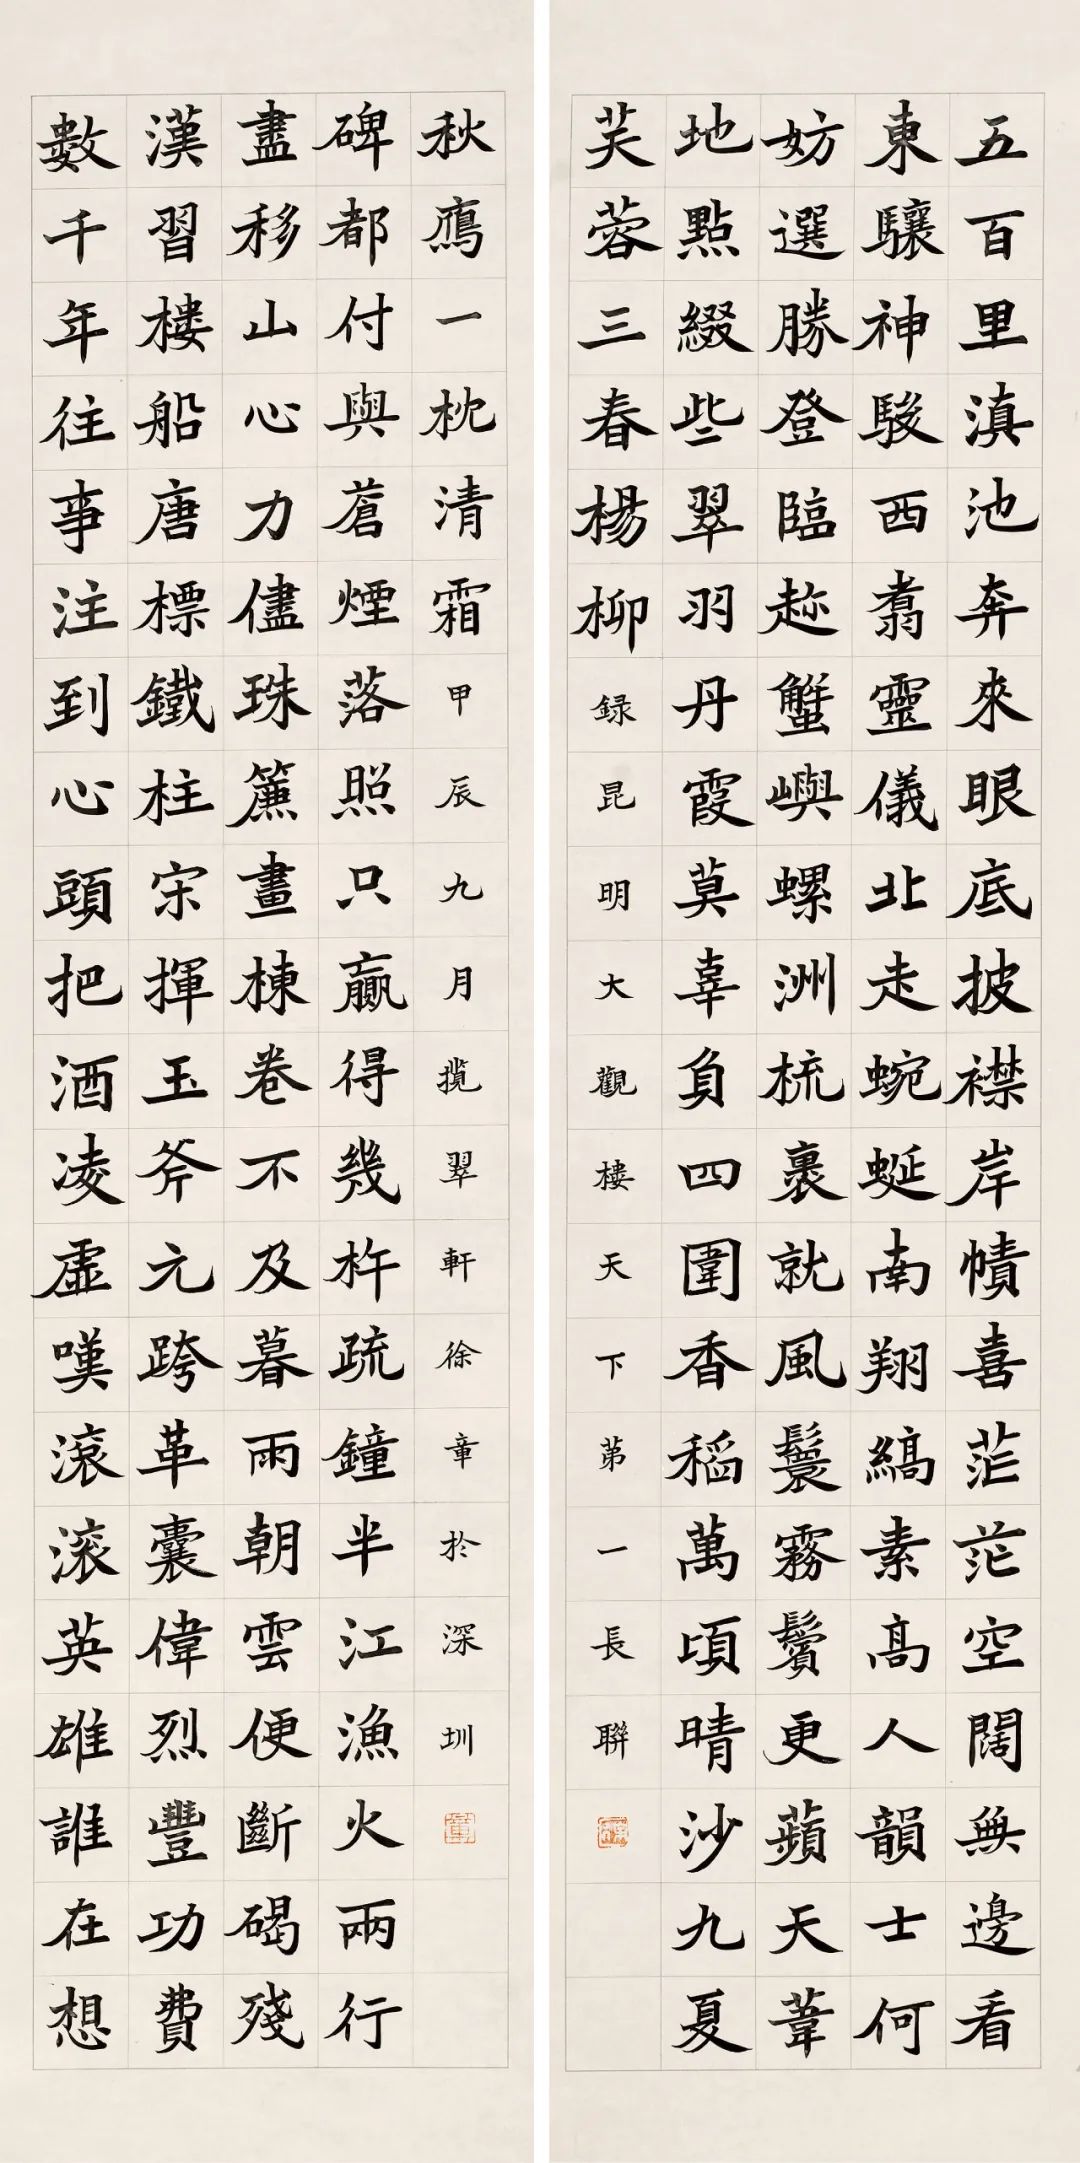 五百里滇池奔來眼底披襟岸幘喜茫茫空闊無邊看
東驤神駿西翥靈儀北走蜿蜒南翔縞素高人韻士何
妨選勝登臨趂蟹嶼螺洲梳裹就風鬟霧鬢更蘋天葦
地點綴些翠羽丹霞莫辜負四圍香稻萬頃晴沙九夏
芙蓉三春楊柳録昆明大觀樓天下苐一長聯
數千年往事注到心頭把酒凌虛嘆滾滾英雄誰在想
漢習樓船唐標鐵柱宋揮玉斧元跨革囊偉烈豐功費
盡移山心力儘珠簾畫棟卷不及暮雨朝雲便斷碣殘
碑都付與蒼煙落照只贏得幾杵疏鐘半江漁火兩行
秋鴈一枕清霜甲辰九月揽翠軒徐章於深圳